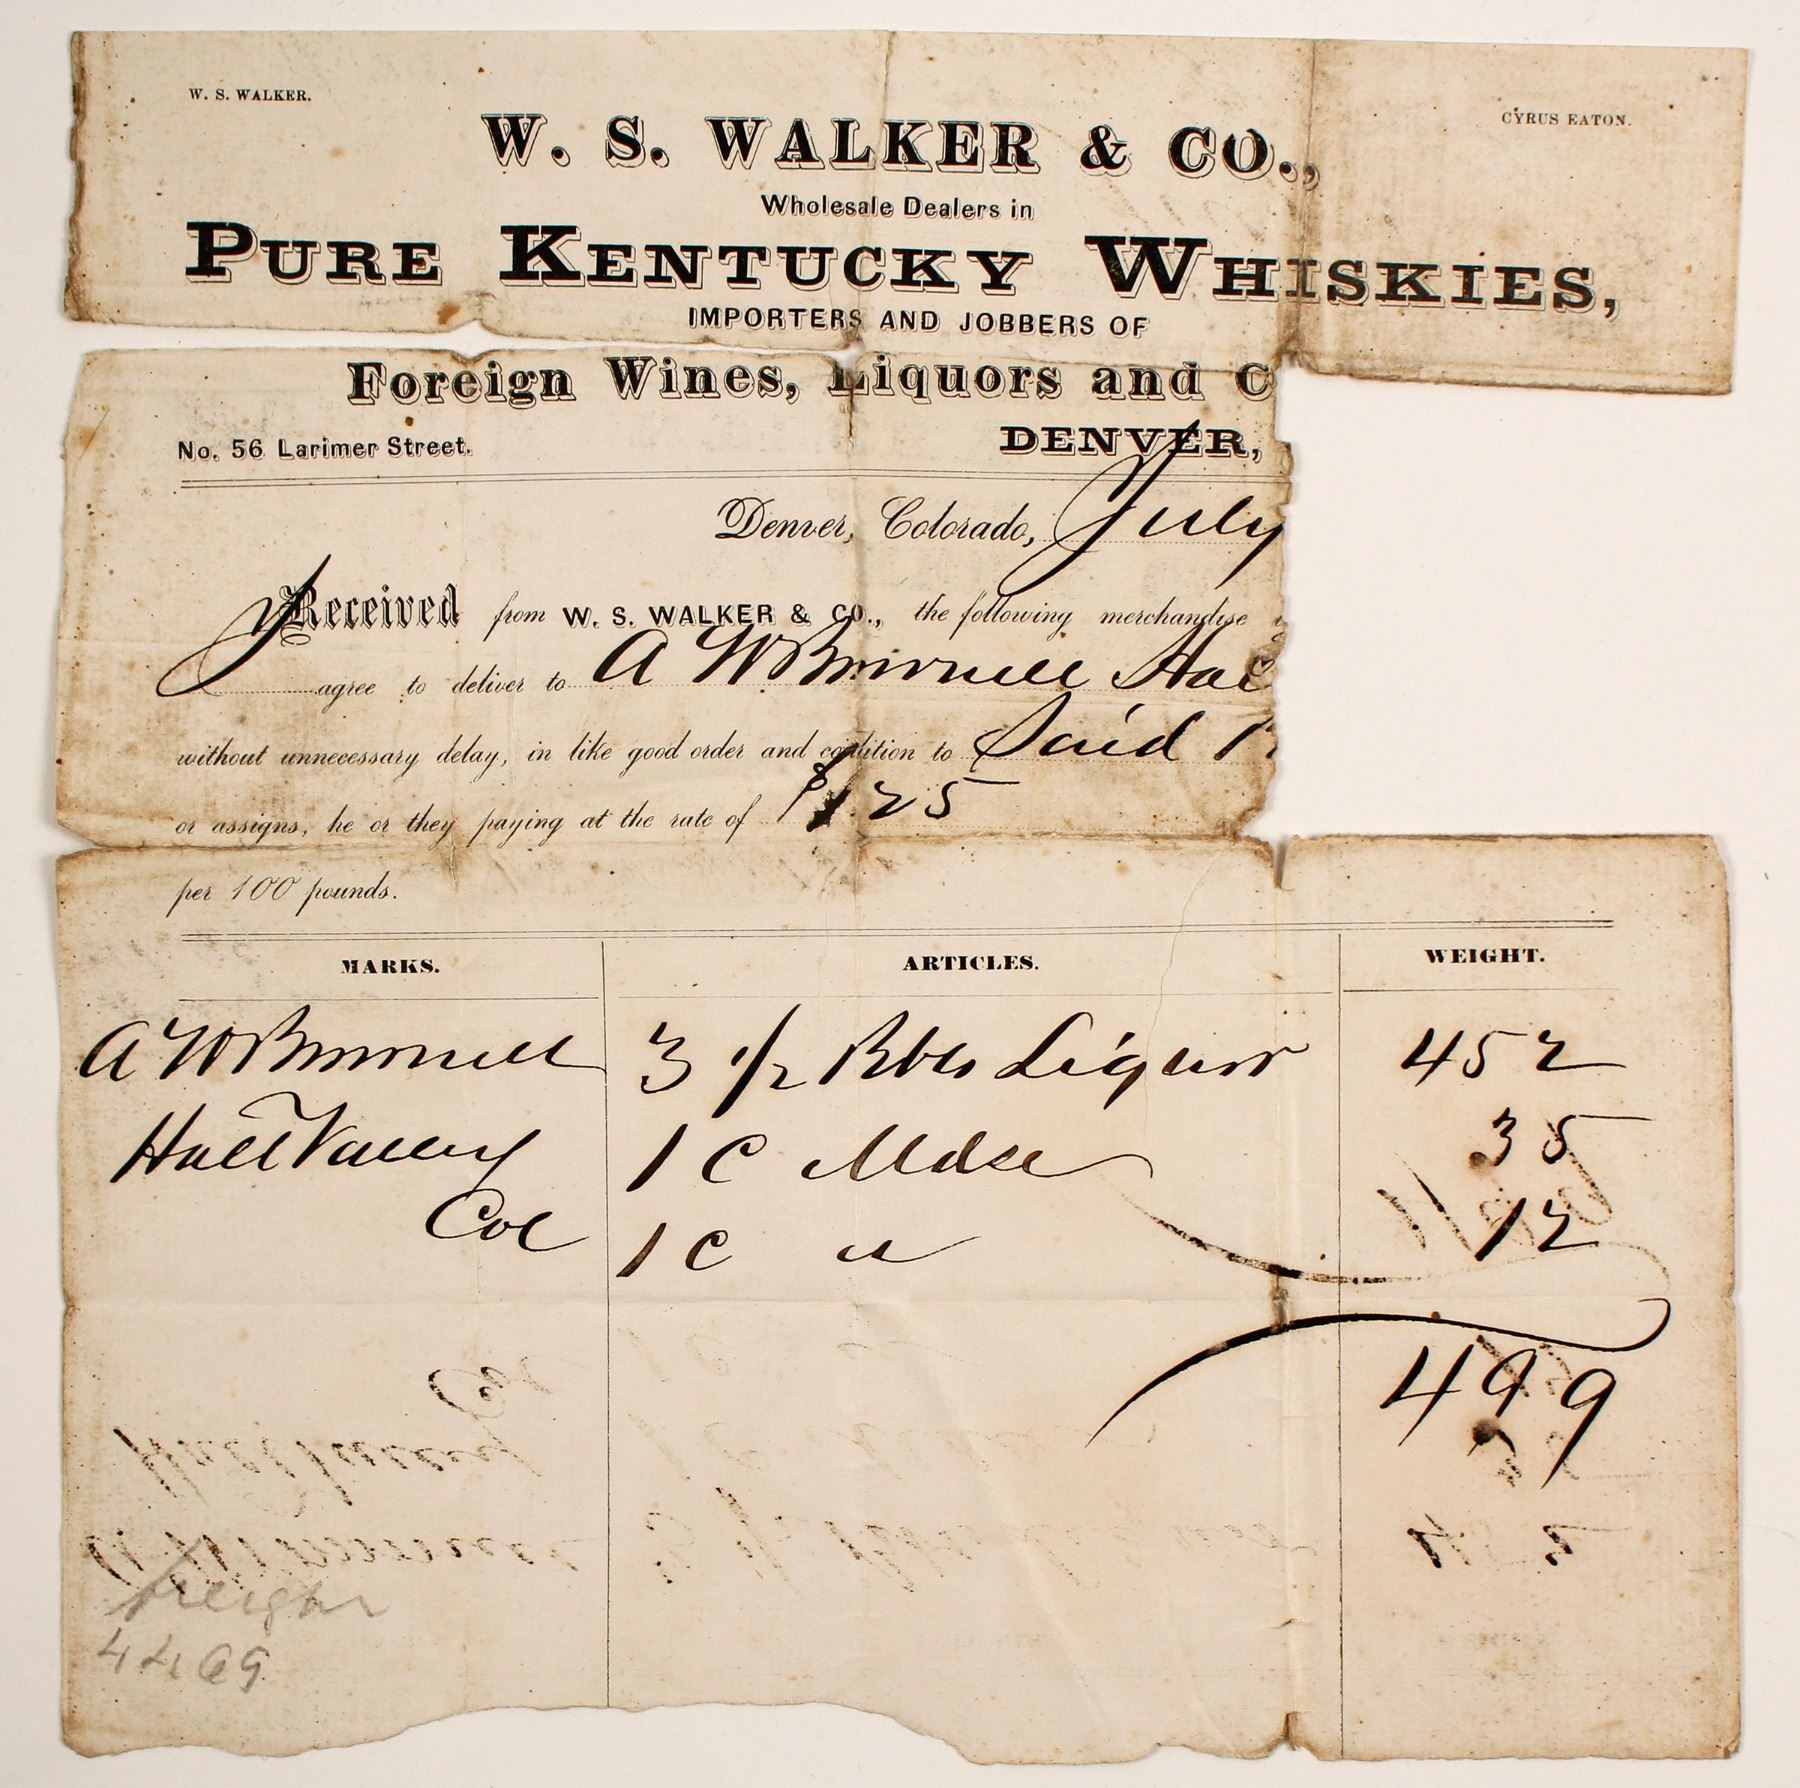 W. S. WALKER.
CYRUS EATON.
W. S. WALKER & CO.,
Wholesale Dealers in
PURE KENTUCKY WHISKIES,
IMPORTERS AND JOBBERS OF
Foreign Wines, Liquors and C
No. 56 Larimer Street.
DENVER,
Denver, Colorado, July
Received from W. S. WALKER & CO., the following merchandise
I agree to deliver to A W Brownell Hal
without unnecessary delay, in like good order and condition to Said
or assigns, he or they paying at the rate of $1.25
per 100 pounds.
MARKS. ARTICLES. WEIGHT.
A W Brownell 3 1/2 Bbls Liquor 452
Hall Valley 1 C Mdse 35
Col 1 C " 12
499
freight
4469